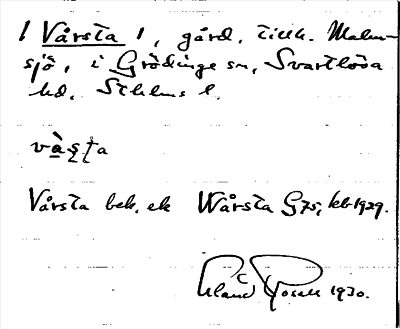 1 Vårsta 1, gård, tillh. Malm-
sjö, i Grödinge sn, Svartlösa
hd, Sthlms l.
våṣṭa
Vårsta bek. ek Wårsta G75, kb 1929.
1930.